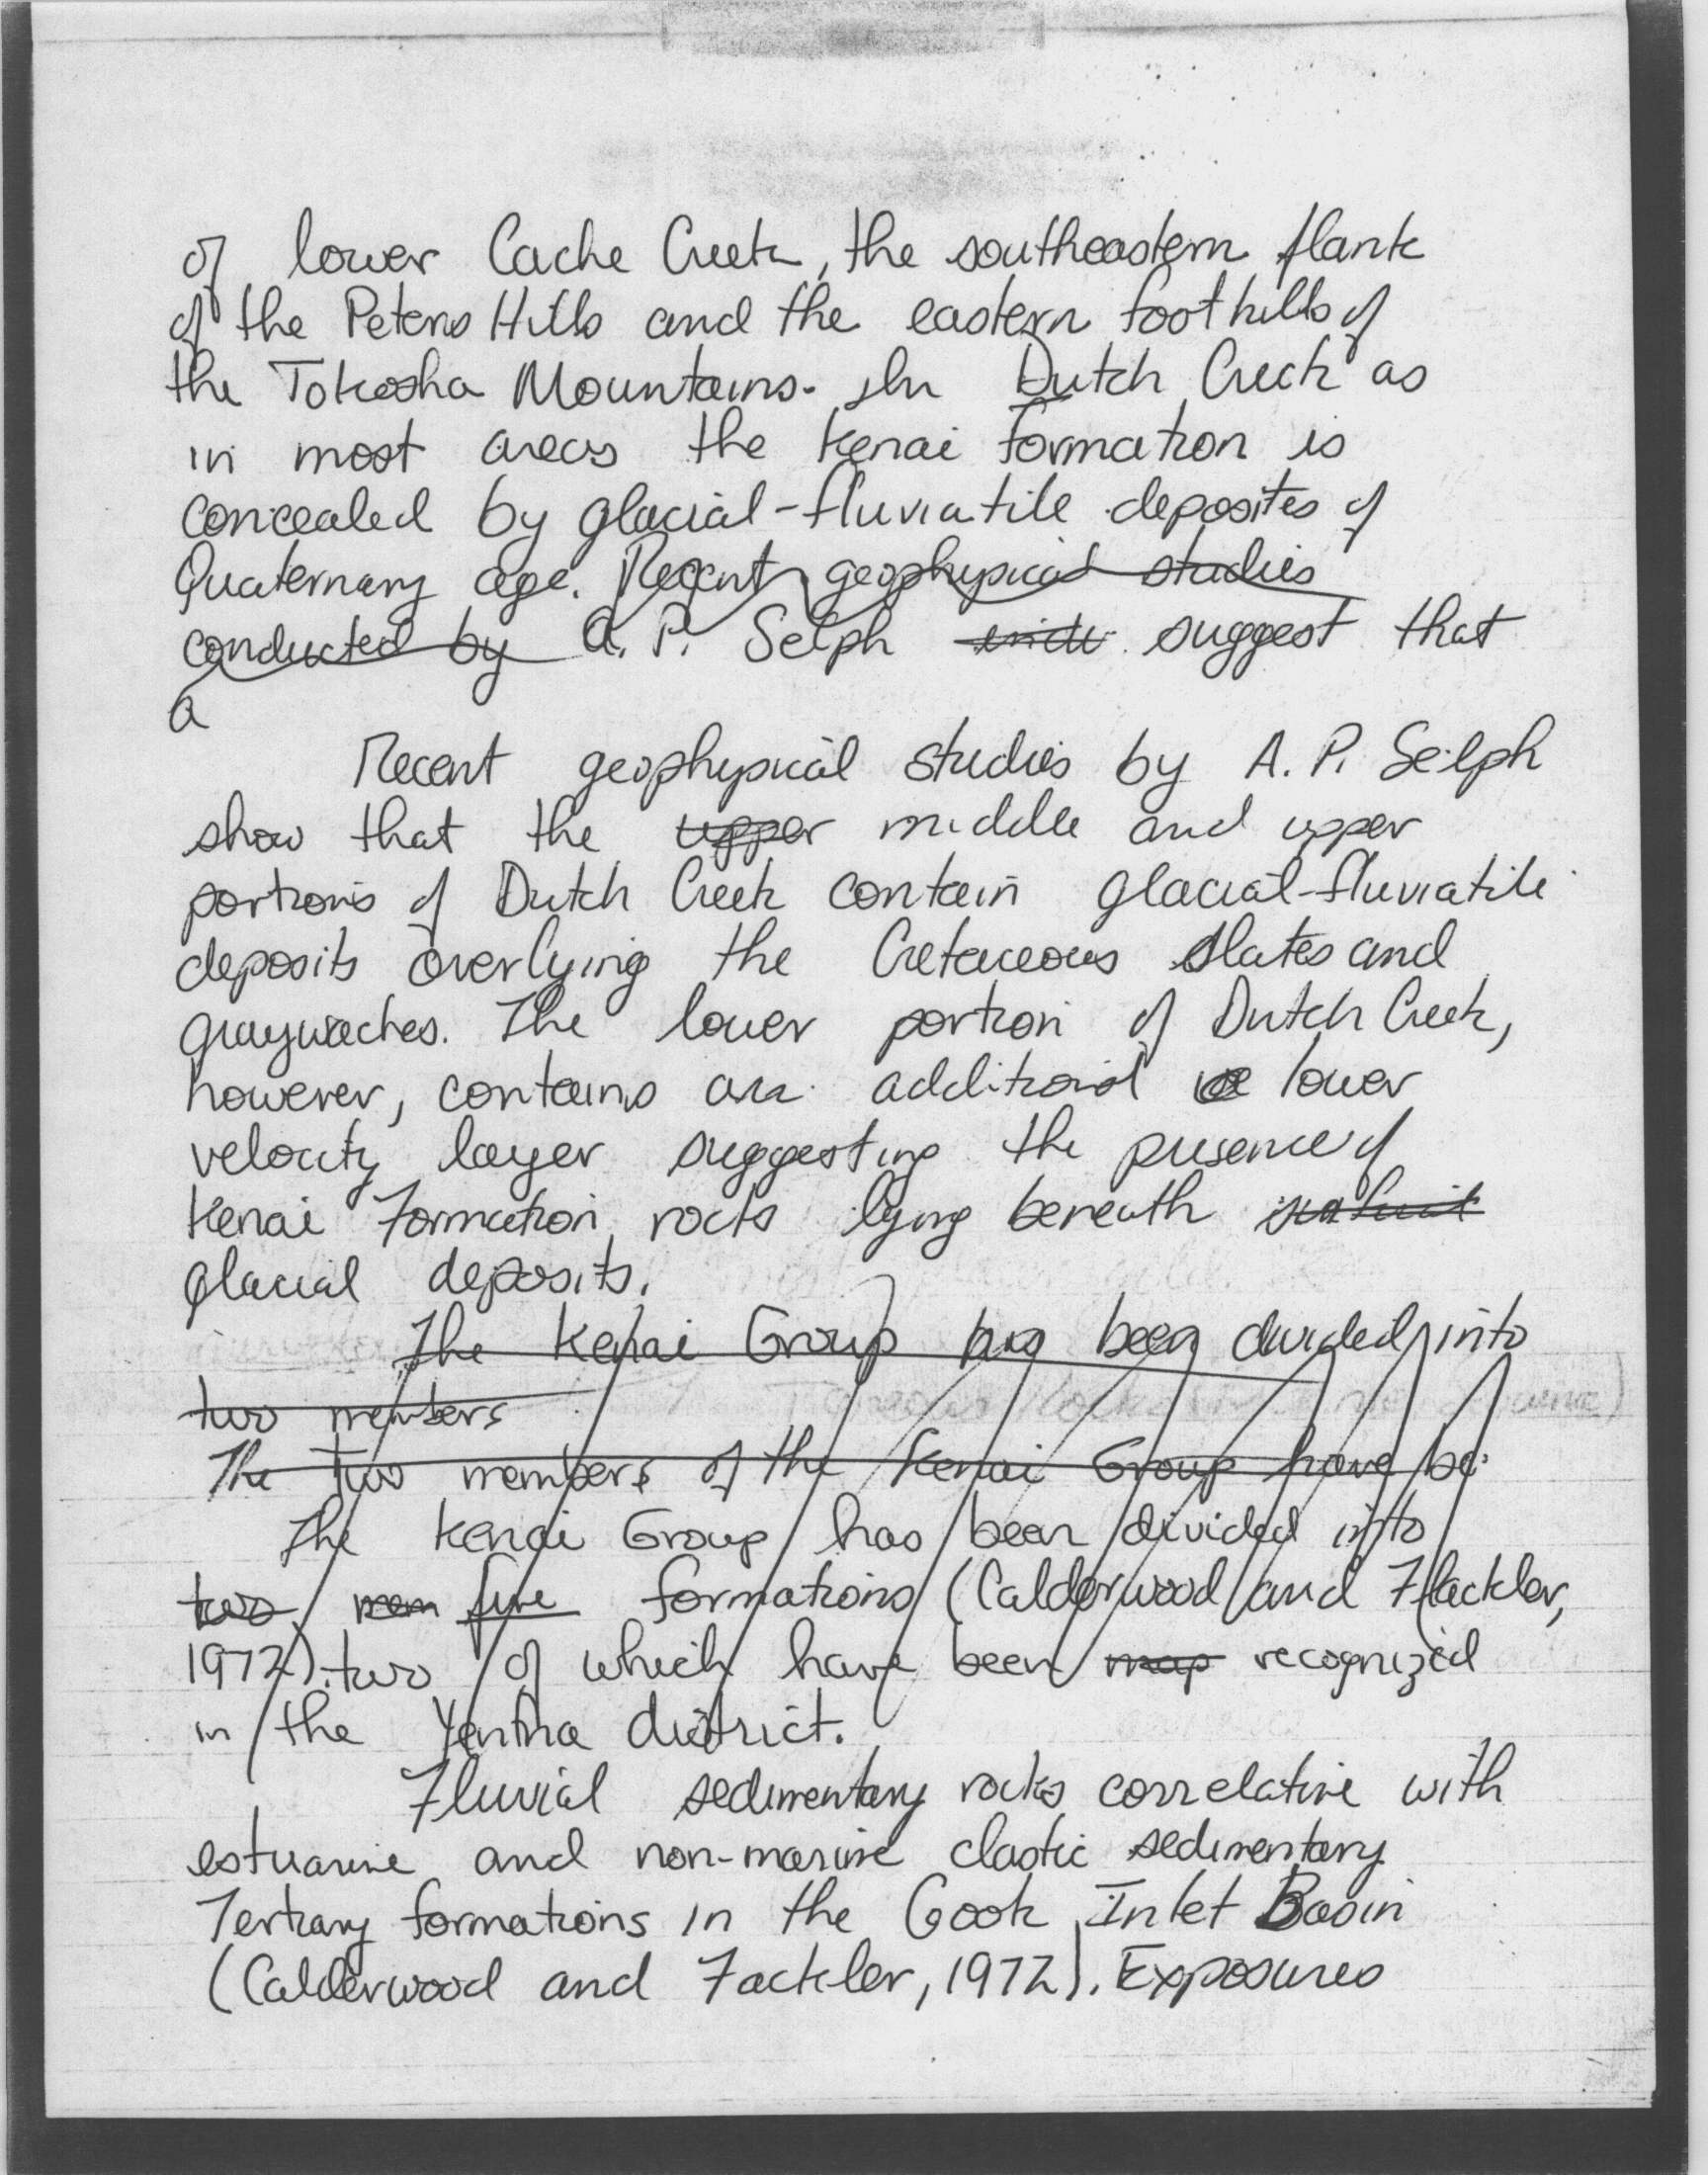 of lower Cache Creek, the southeastern flank
of the Peters Hills and the eastern foothills of
the Tokosha Mountains. In Dutch Creek as
in most areas the Kenai Formation is
concealed by glacial-fluviatile deposites of
Quaternary age. Recent geophysical studies
conducted by A. P. Selph suggest that
a
Recent geophysical studies by A. P. Selph
show that the upper middle and upper
portions of Dutch Creek contain glacial-fluviatile
deposits overlying the Cretaceous slates and
graywackes. The lower portion of Dutch Creek,
however, contains an additional lower
velocity layer suggesting the presence of
Kenai Formation rocks lying beneath
glacial deposits.
The Kenai Group has been divided into
two members
The two members of the Kenai Group have be
The Kenai Group has been divided into
two mem five formations (Calderwood and Flackler,
1972). two of which have been map recognized
in the Yentna district.
Fluvial sedimentary rocks correlative with
estuarine and non-marine clastic sedimentary
Tertiary formations in the Cook Inlet Basin
(Calderwood and Fackler, 1972). Exposures